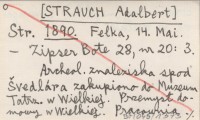 [STRAUCH Adalbert]
Str. 1890. Felka, 14. Mai.
- Zipser Bote 28, nr 20: 3.
Archeol. znaleziska spod
Švedlára zakupiono do Muzeum
Tatrz. w Wielkiej. Przemysł do-
mowy w Wielkiej.